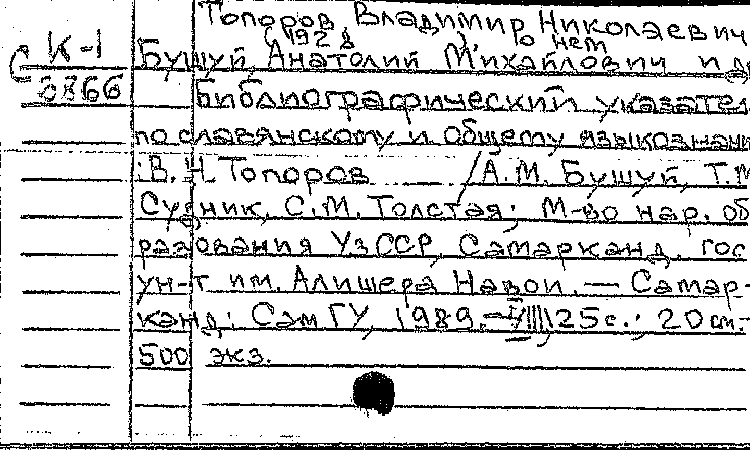 Топоров, Владимир Николаевич
(1928 ) о нем
К-1
Бушуй, Анатолий Михайлович и др
С 6366
Библиографический указател
по славянскому и общему языкознани
: В. Н. Топоров / А. М. Бушуй, Т. М
Судник, С. М. Толстая; М-во нар. об
разования УзССР, Самарканд. гос
ун-т им. Алишера Навои. — Самар-
канд: СамГУ, 1989. — 125 с.; 20 см. -
500 экз.